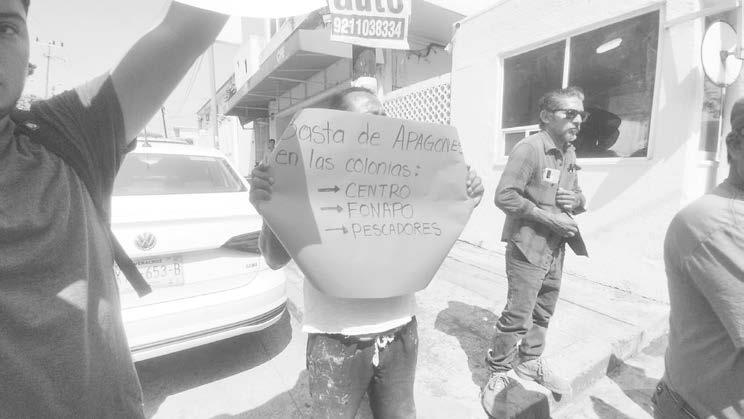 auto
9211038334
Basta de APAGONES
en las colonias:
→ CENTRO
→ FONAPO
→ PESCADORES
VERACRUZ
653-B